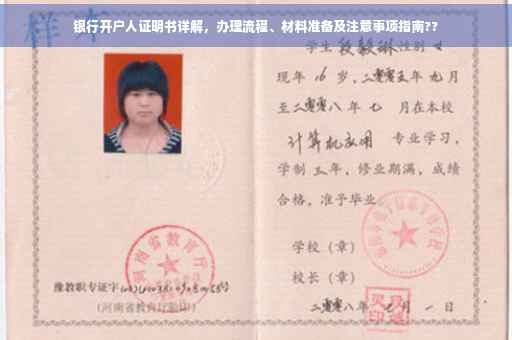 银行开户人证明书详解，办理流程、材料准备及注意事项指南??
样本
学生 段毅琳 性别 女
现年 16 岁，二零零五年 九月
至二零零八年 七 月在本校
计算机应用 专业学习，
学制 三年，修业期满，成绩
合格，准予毕业
学校（章）
校长（章）
二零零八年 七 月 一 日
河南省教育厅
豫教职专证字
（河南省教育厅验印）